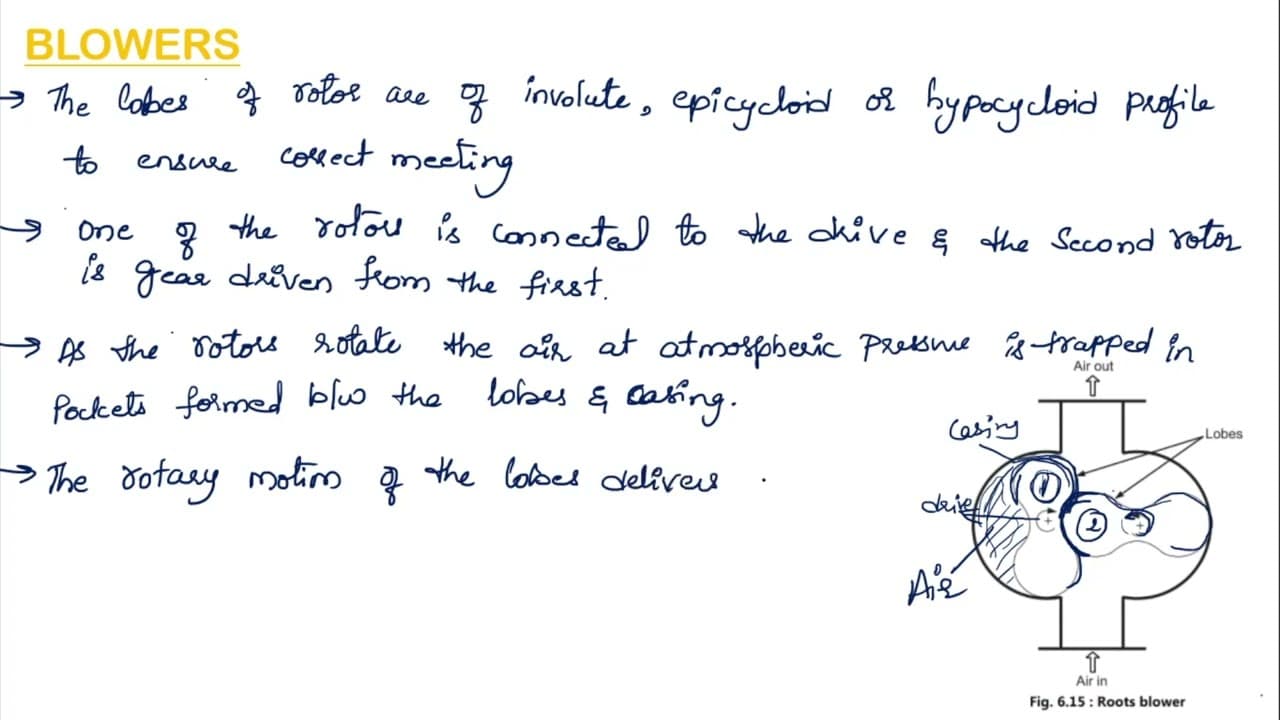 BLOWERS
→ The lobes of rotor are of involute, epicycloid or hypocycloid profile
to ensure correct meeting
→ One of the rotors is connected to the drive & the second rotor
is gear driven from the first.
→ As the rotors rotate the air at atmospheric pressure is trapped in
Pockets formed b/w the lobes & casing.
→ The rotary motion of the lobes delivers
Air out
Casing
Lobes
1
drive
2
Air
Air in
Fig. 6.15 : Roots blower